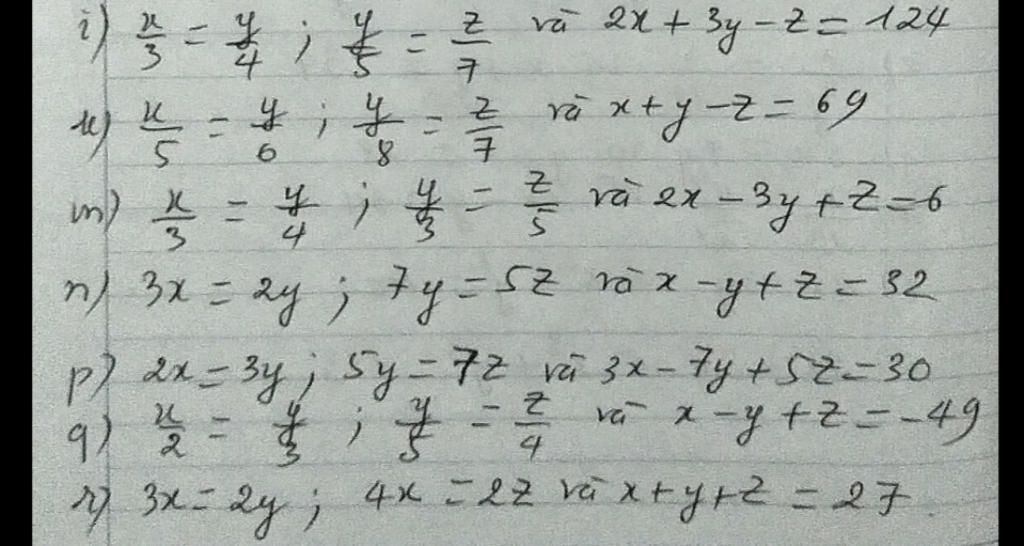 i) x/3 = y/4 ; y/5 = z/7 và 2x + 3y - z = 124
k) x/5 = y/6 ; y/8 = z/7 và x + y - z = 69
m) x/3 = y/4 ; y/3 = z/5 và 2x - 3y + z = 6
n) 3x = 2y ; 7y = 5z và x - y + z = 32
p) 2x = 3y ; 5y = 7z và 3x - 7y + 5z = 30
q) x/2 = y/3 ; y/5 = z/4 và x - y + z = -49
r) 3x = 2y ; 4x = 2z và x + y + z = 27.